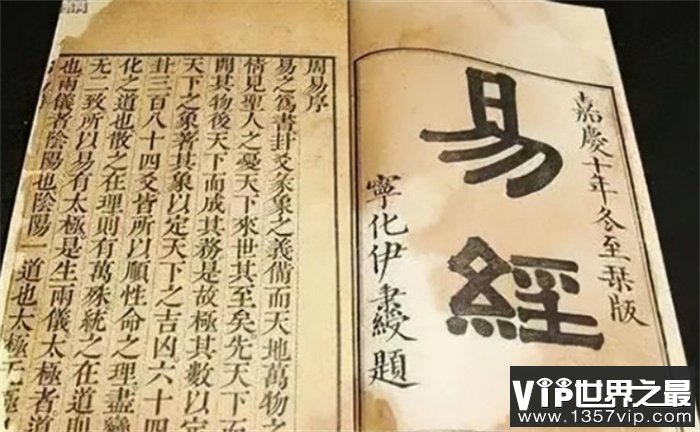 嘉慶十年冬至栞版
易經
寧化伊秉綬題
周易序
易之爲書卦爻彖象之義備而天地萬物
情見聖人之憂天下來世其至矣先天下
開其物後天下而成其務是故極其數以
天下之象著其象以定天下之吉凶六十四
卦三百八十四爻皆所以順性命之理盡變
化之道也散之在理則有萬殊統之在道
无二致所以易有太極是生兩儀太極者道
也兩儀者陰陽也陰陽一道也太極无極
VIP世界之最
www.1357vip.com